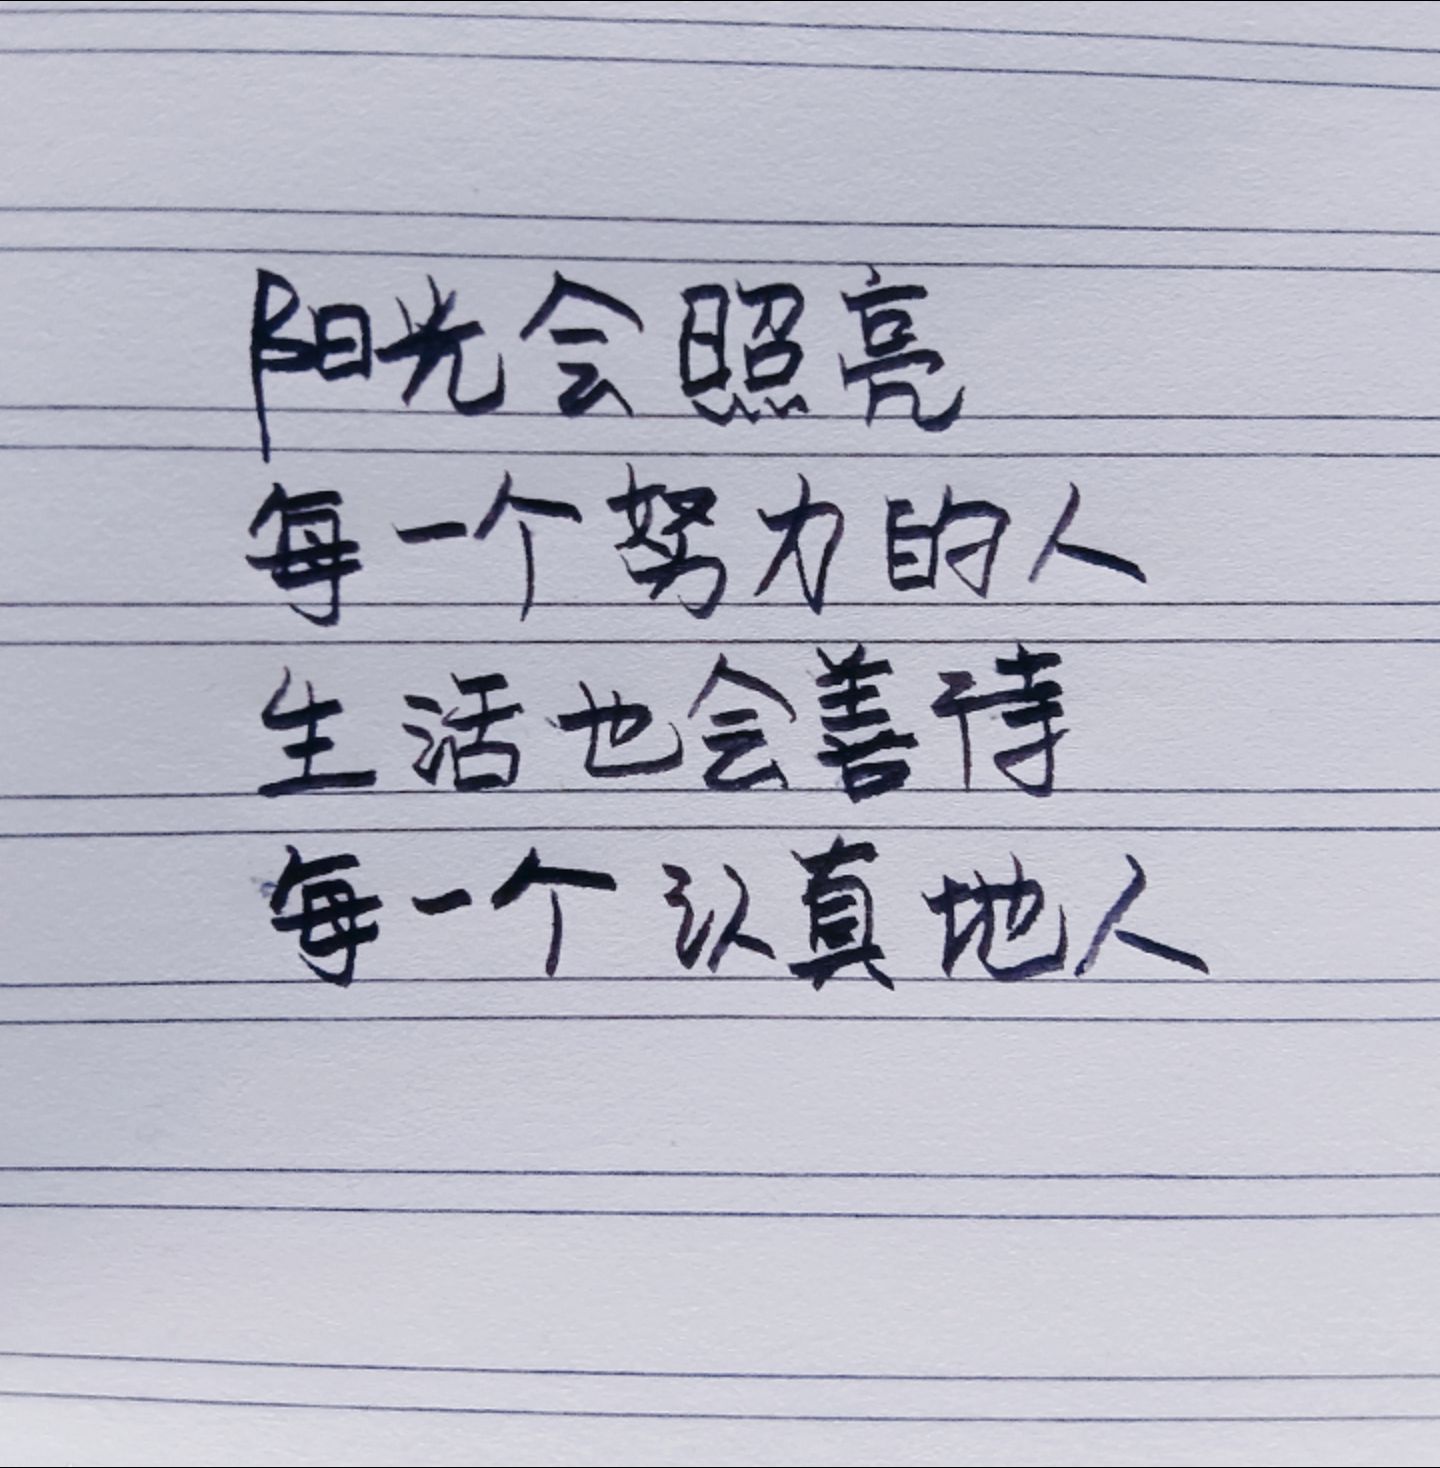 阳光会照亮
每一个努力的人
生活也会善待
每一个认真地人